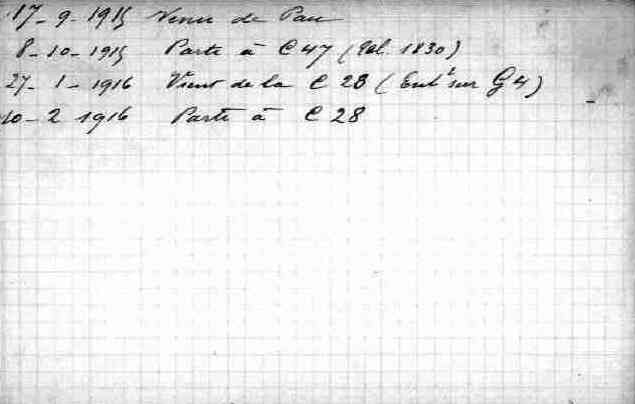 17-9-1915 Venu de Pau
8-10-1915 Parti à C 47 (Tél. 1830)
27-1-1916 Vient de la C 28 (Entt sur G4)
10-2 1916 Parti à C 28